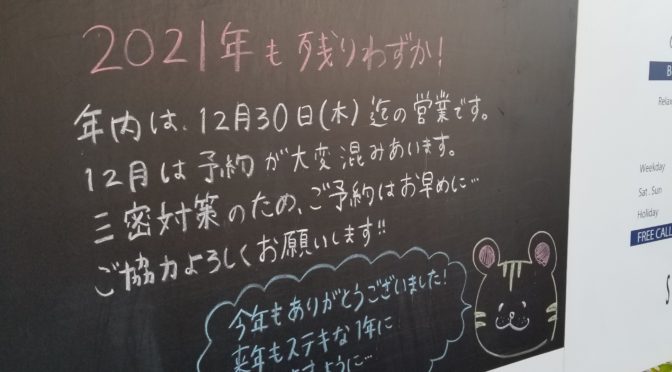 2021年も残りわずか!
年内は、12月30日(木)迄の営業です。
12月は予約が大変混みあいます。
三密対策のため、ご予約はお早めに…
ご協力よろしくお願いします!!
今年もありがとうございました!
来年もステキな1年に
ますように…
Weekday
Sat . Sun
Holiday
FREE CALL